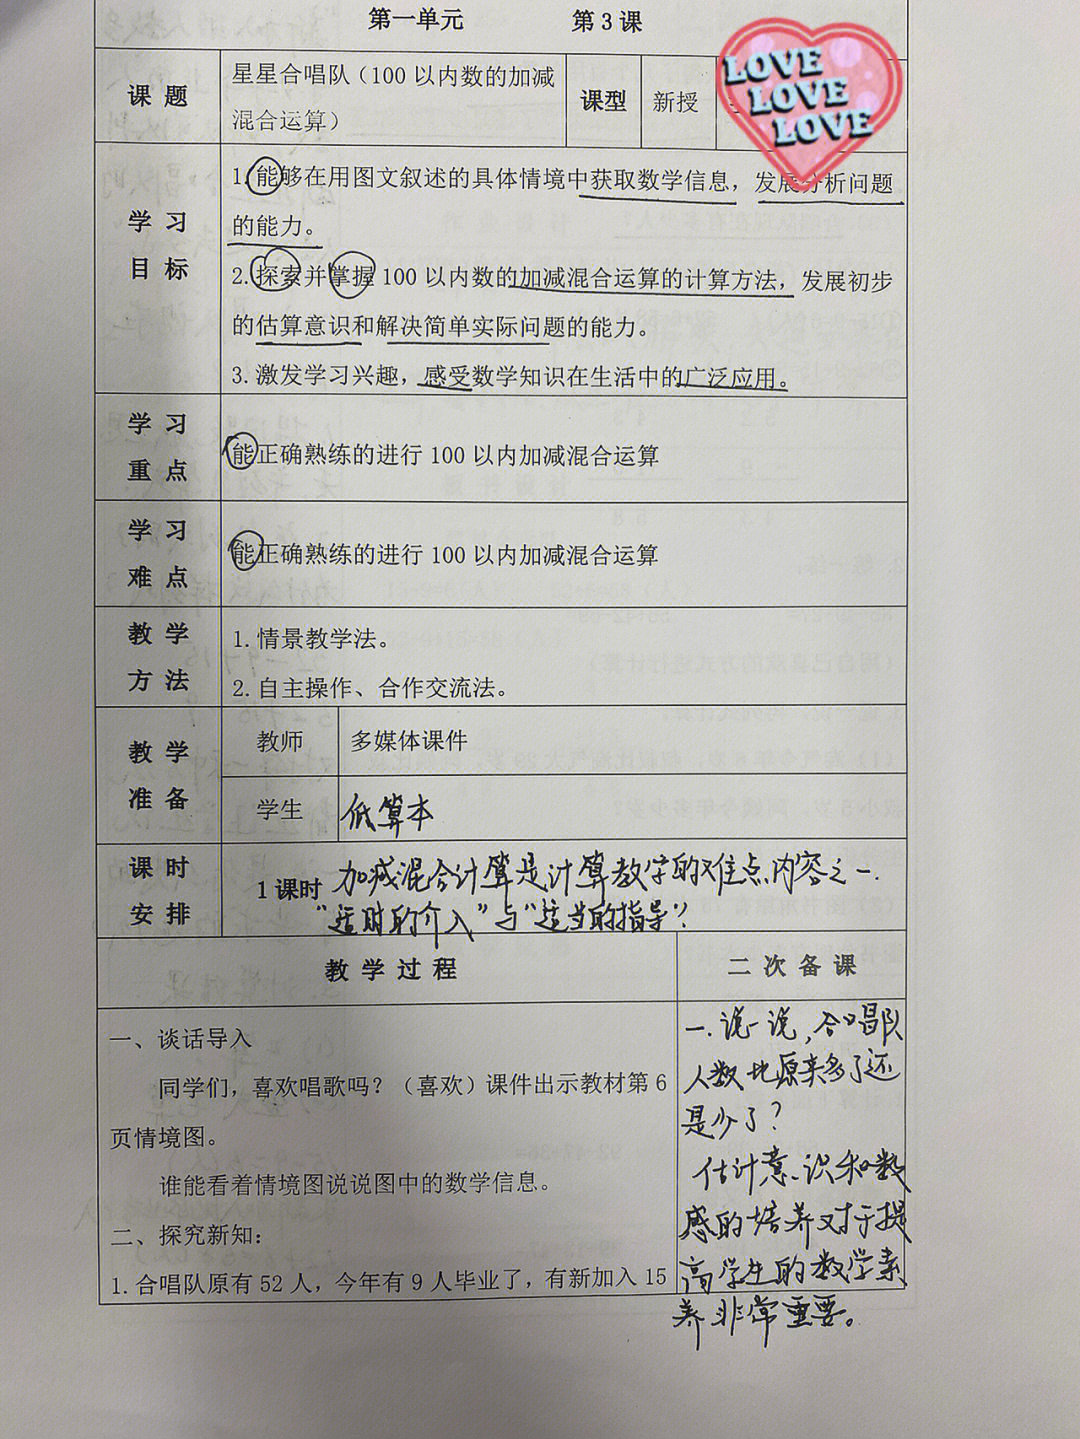 第一单元 第3课
课题 星星合唱队（100以内数的加减 课型 新授
混合运算）
LOVE
LOVE
LOVE
学习目标
1.能够在用图文叙述的具体情境中获取数学信息，发展分析问题
的能力。
2.探索并掌握100以内数的加减混合运算的计算方法，发展初步
的估算意识和解决简单实际问题的能力。
3.激发学习兴趣，感受数学知识在生活中的广泛应用。
学习重点
能正确熟练的进行100以内加减混合运算
学习难点
能正确熟练的进行100以内加减混合运算
教学方法
1.情景教学法。
2.自主操作、合作交流法。
教学准备
教师 多媒体课件
学生 低算本
课时安排
1课时 加减混合计算是计算教学的难点内容之一.
“适时的介入”与“适当的指导”?
教学过程 二次备课
一、谈话导入
同学们，喜欢唱歌吗？（喜欢）课件出示教材第6
页情境图。
谁能看着情境图说说图中的数学信息。
二、探究新知：
1.合唱队原有52人，今年有9人毕业了，有新加入15
一.说一说，合唱队
人数比原来多了还
是少了？
估计意识和数
感的培养对于提
高学生的数学素
养非常重要。